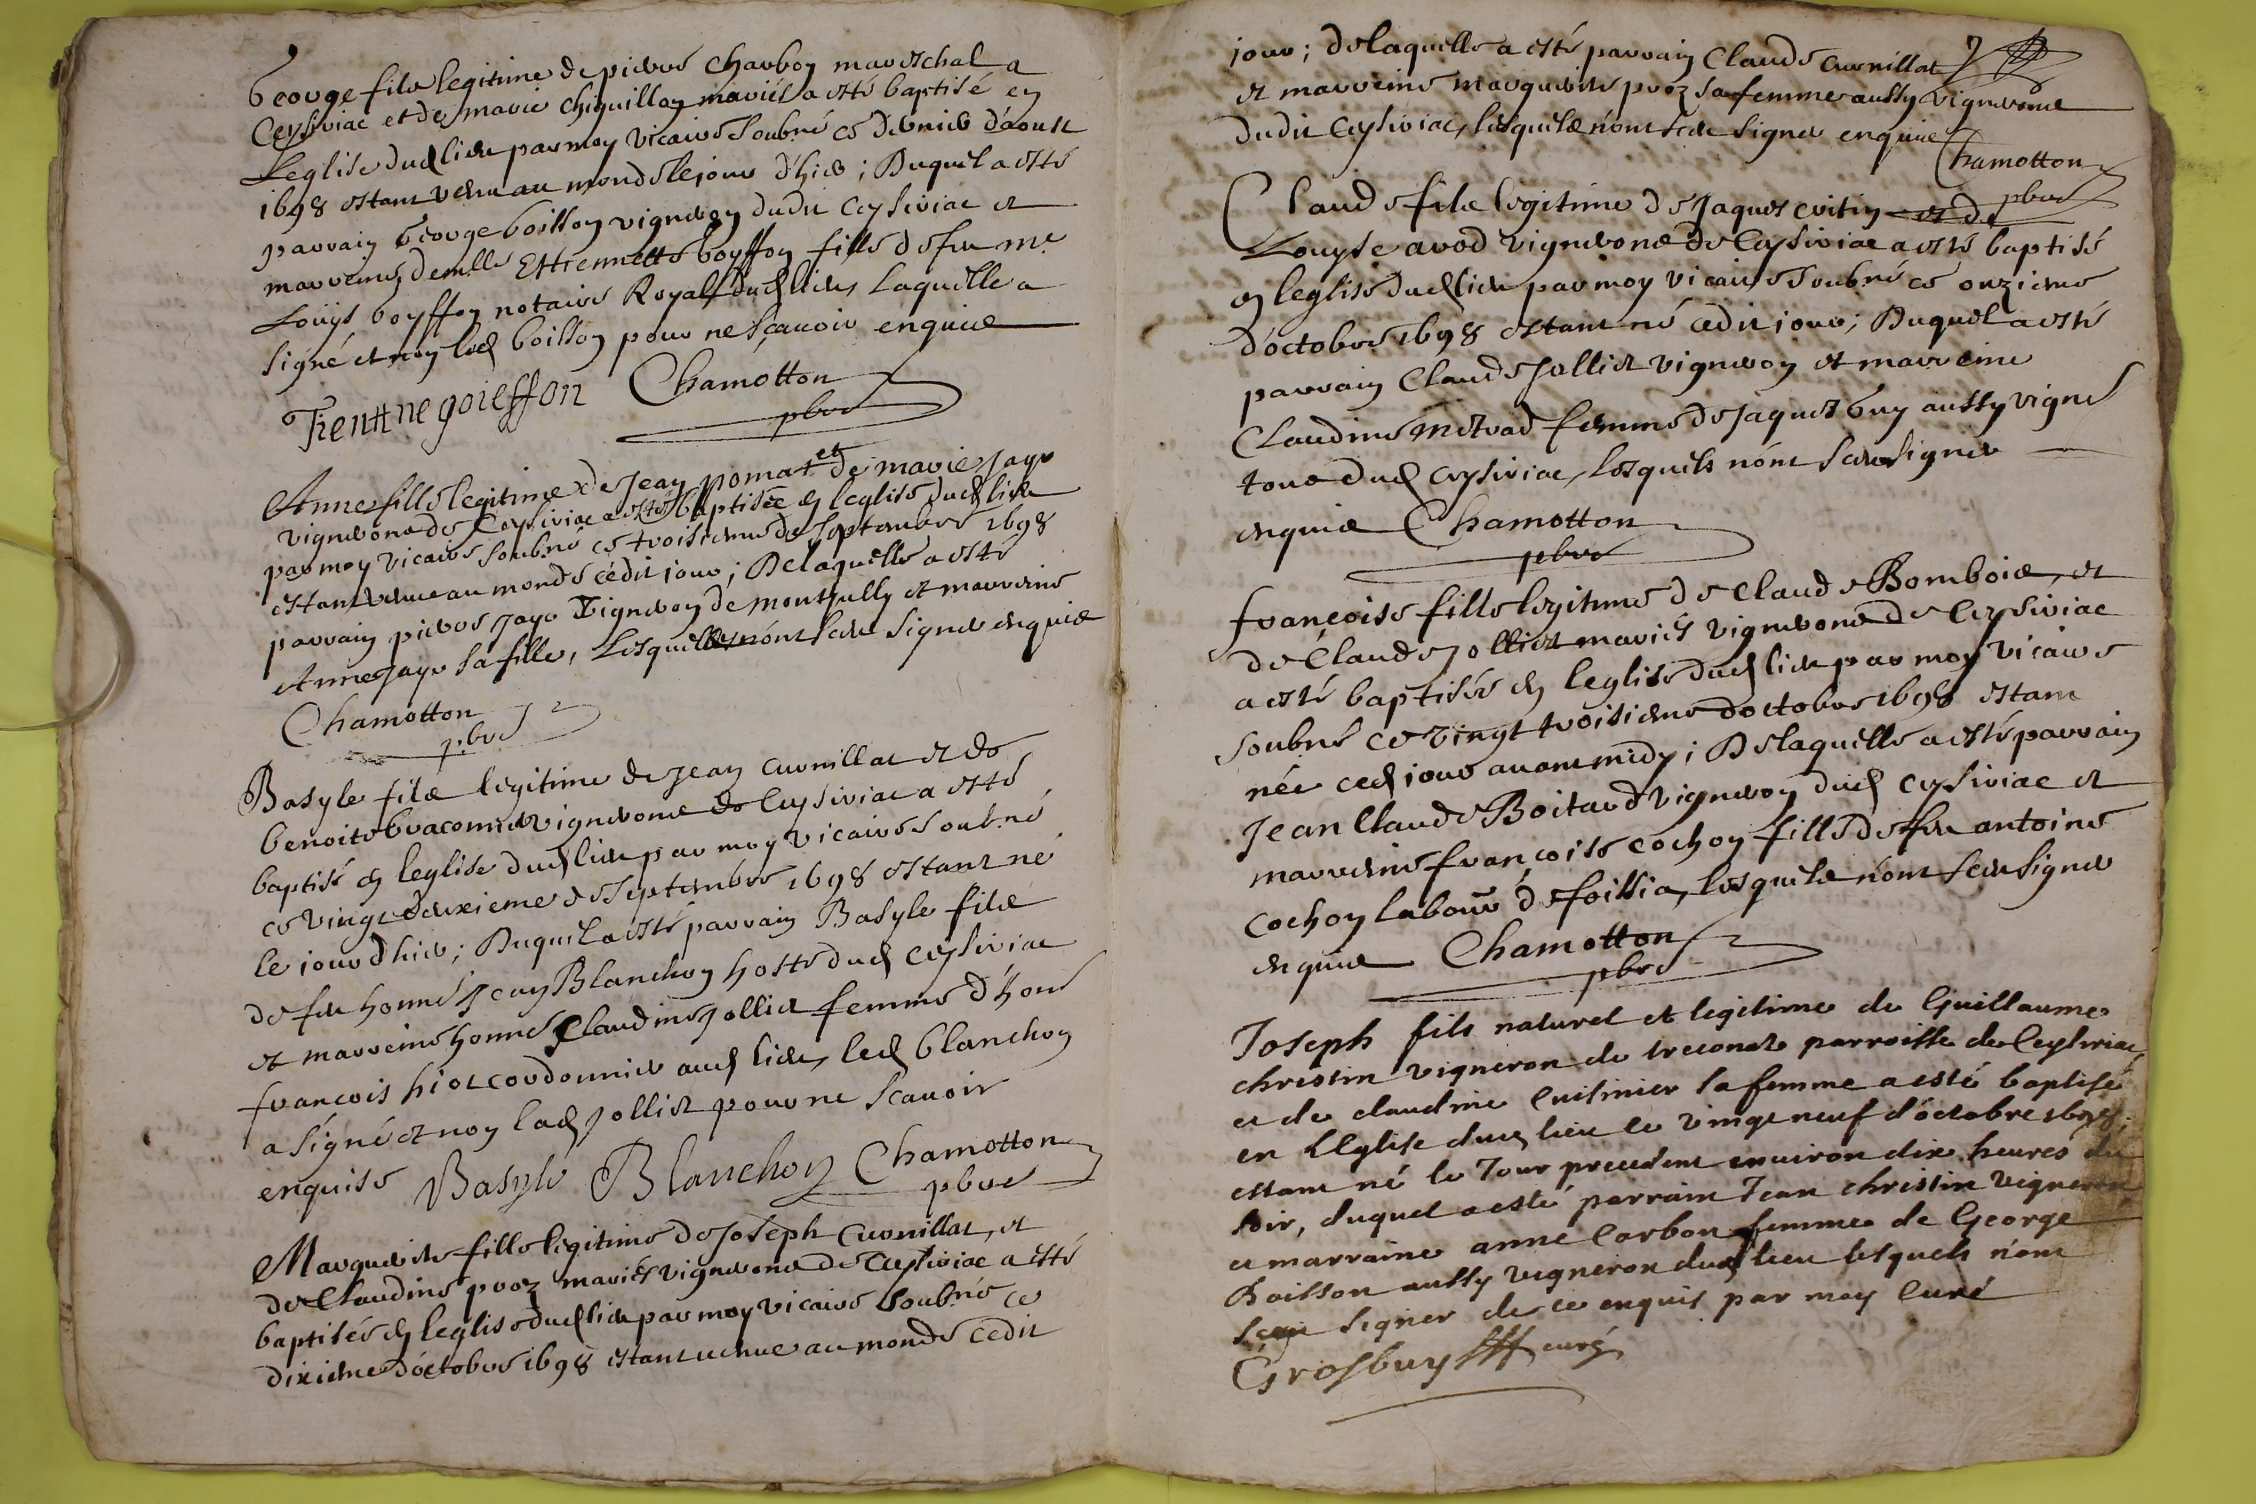 George fils legitime de pierre Charbon mareschal a
Ceyseriac et de marie chiquillon mariés a esté baptisé en
Leglise dud lieu par moy vicaire soubné ce dernier d'aoust
1698 estant venu au monde le jour d'hier ; Duquel a esté
parrain George boisson vigneron dudit Ceyseriac et
marreine demlle Ettiennette boyffon fille de feu me
Louys boyffon notaire Royal dud lieu, Laquelle a
signé et non led boisson pour ne sçavoir enquise
Tienttne goieffon Chamotton
pbre
Anne fille legitime de Jean pomat et de marie Jayr
vignerons de Ceyseriac a esté baptisée en leglise dud lieu
par moy vicaire soubné ce troisieme de septembre 1698
estant venue au monde cédit jour ; Delaquelle a esté
parrain pierre Jayr vigneron de montjully et marreine
Anne Jayr sa fille, Lesquelles n'ont sceu signer enquis
Chamotton
pbre
Basyle fils legitime de Jean Curnillat et de
benoite braconnier vignerons de Ceyseriac a esté
baptisé en leglise dud lieu par moy vicaire soubné
ce vingt deuxieme de septembre 1698 estant né
le jour d'hier ; Duquel a esté parrain Basyle fils
de feu honne Jean Blanchon hoste dud Ceyseriac
et marreine honne Claudine Jollier femme d'hone
francois hiot cordonnier aud lieu, led blanchon
a signé et non lad Jollier pour ne scauoir
enquise Basyle Blanchon Chamotton
pbre
Marguerite fille legitime de Joseph Curnillat, et
de Claudine proz mariés vignerons de Ceyseriac a esté
baptisée en leglise dud lieu par moy vicaire soubné ce
dixieme d'octobre 1698 estant venue au monde cédit
7
jour ; delaquelle a esté parrain Claude Curnillat
et marreine marguerite proz sa femme aussy vignerons
dudit Ceyseriac, lesquels n'ont sceu signer enquis
Chamotton
pbre
Claude fils legitime de Jaques critin et de
Louyse avod vignerons de Ceyseriac a esté baptisé
en leglise dud lieu par moy vicaire soubné ce onzieme
d'octobre 1698 estant né cédit jour ; Duquel a esté
parrain Claude Jollier vigneron et marreine
Claudine metrad femme de Jaques Guy aussy vigne
tous dud Ceyseriac, lesquels n'ont sceu signer
enquis Chamotton
pbre
françoise fille legitime de Claude Bombois, et
de Claude Jollier mariés vignerons de Ceyseriac
a esté baptisée en leglise dud lieu par moy vicaire
soubné ce vingt troisieme d'octobre 1698 estant
née ced jour avant midy ; Delaquelle a esté parrain
Jean Claude Boitard vigneron dud Ceyseriac et
marreine françoise cochon fille de feu antoine
cochon labour de foissia, lesquels n'ont sceu signer
enquis Chamotton
pbre
Joseph fils naturel et legitime de Guillaume
christin vigneron de treconat parroisse de Ceyseriac,
et de claudine Cuisinier sa femme a esté baptisé
en LEglise dud lieu le vingt neuf d'octobre 1698,
estant né le Jour precedent environ dix heures du
soir, duquel a esté parrain Jean christin vigneron
et marraine anne Carbon femme de George
Boisson aussy vigneron dud lieu lesquels n'ont
sceu signer de ce enquis par moy Curé
Grosbuy curé